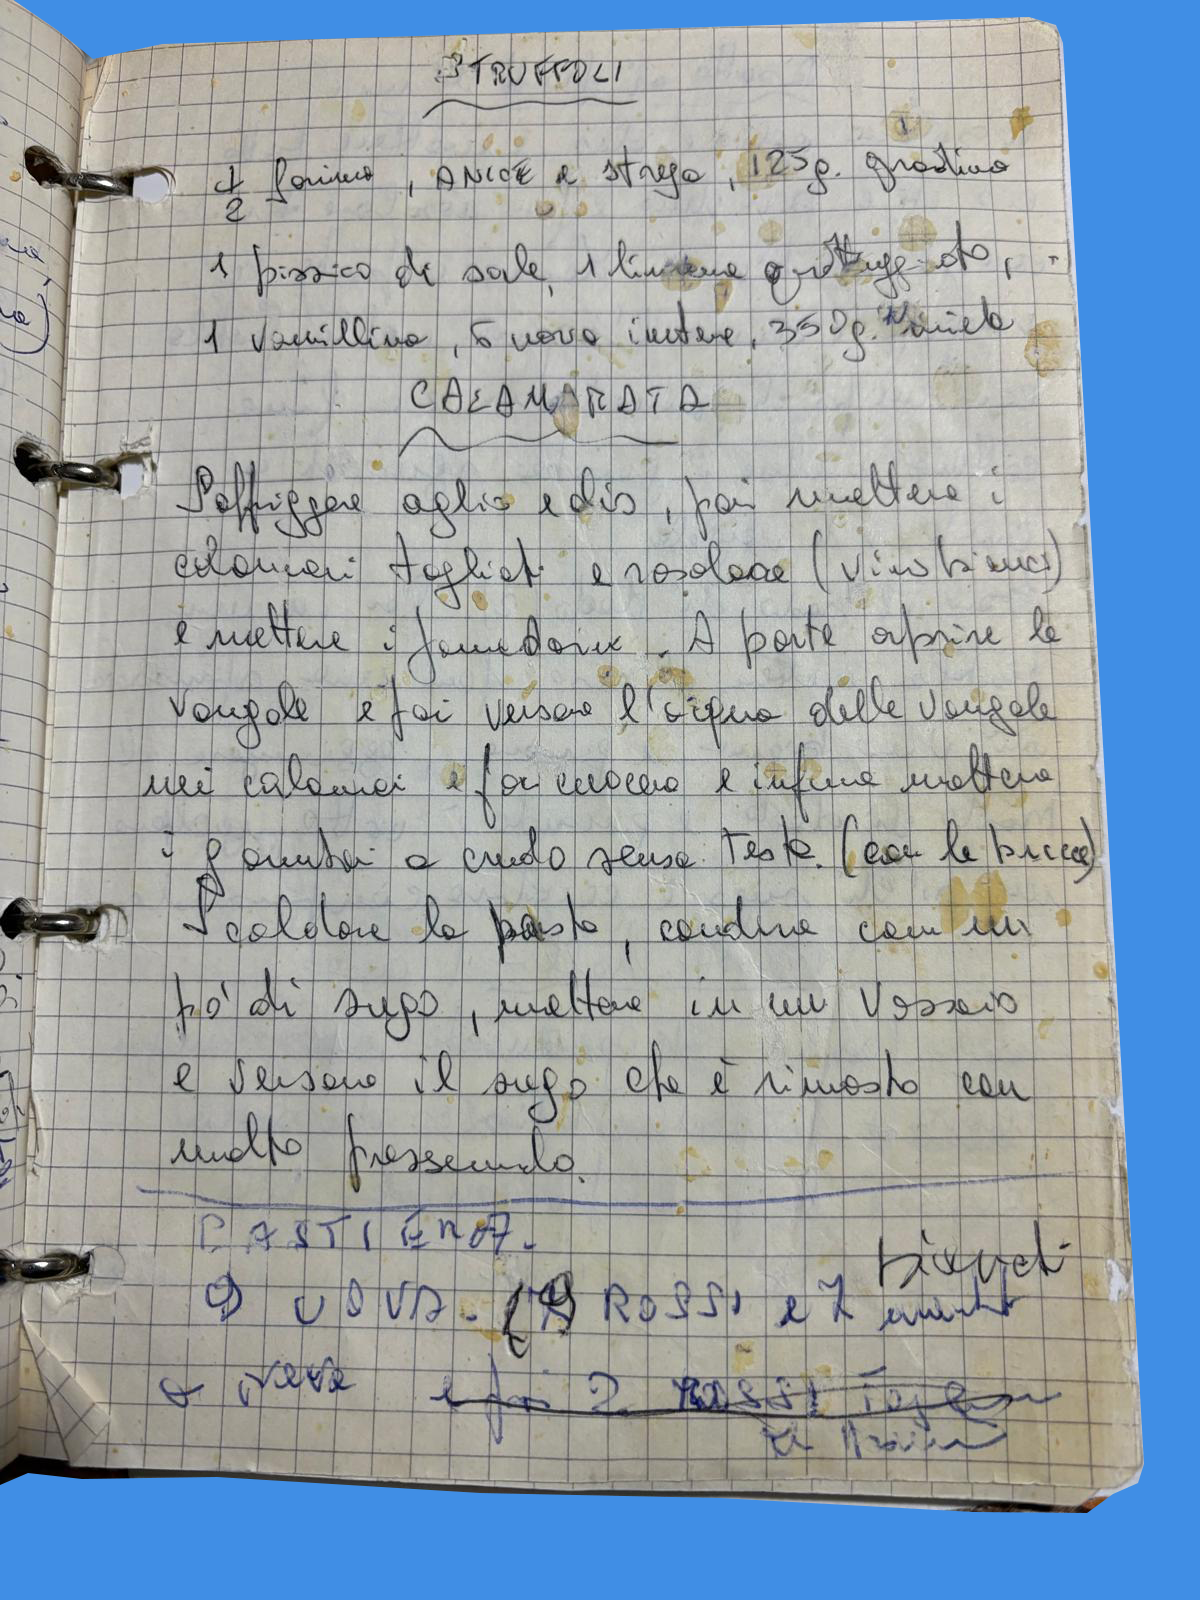 STRUFFOLI
1/2 farina, ANICE e strega, 125g. gradina
1 pizzico di sale, 1 limone grattuggiato,
1 vanillina, 5 uova intere, 350g. miele
CALAMARATA
Soffriggere aglio e olio, poi mettere i
calamari tagliati e rosolare (vino bianco)
e mettere i pomodorix. A parte aprire le
vongole e poi versare l'acqua delle vongole
nei calamari e far cuocere e infine mettere
i gamberi a crudo senza testa. (con le bucce)
Scaldare la pasta, condire con un
pò di sugo, mettere in un vassoio
e versare il sugo che è rimasto con
molto prezzemolo.
PASTIERA.
9 UOVA. (9 ROSSI e 7 bianchi montati
a neve e poi 2 ROSSI